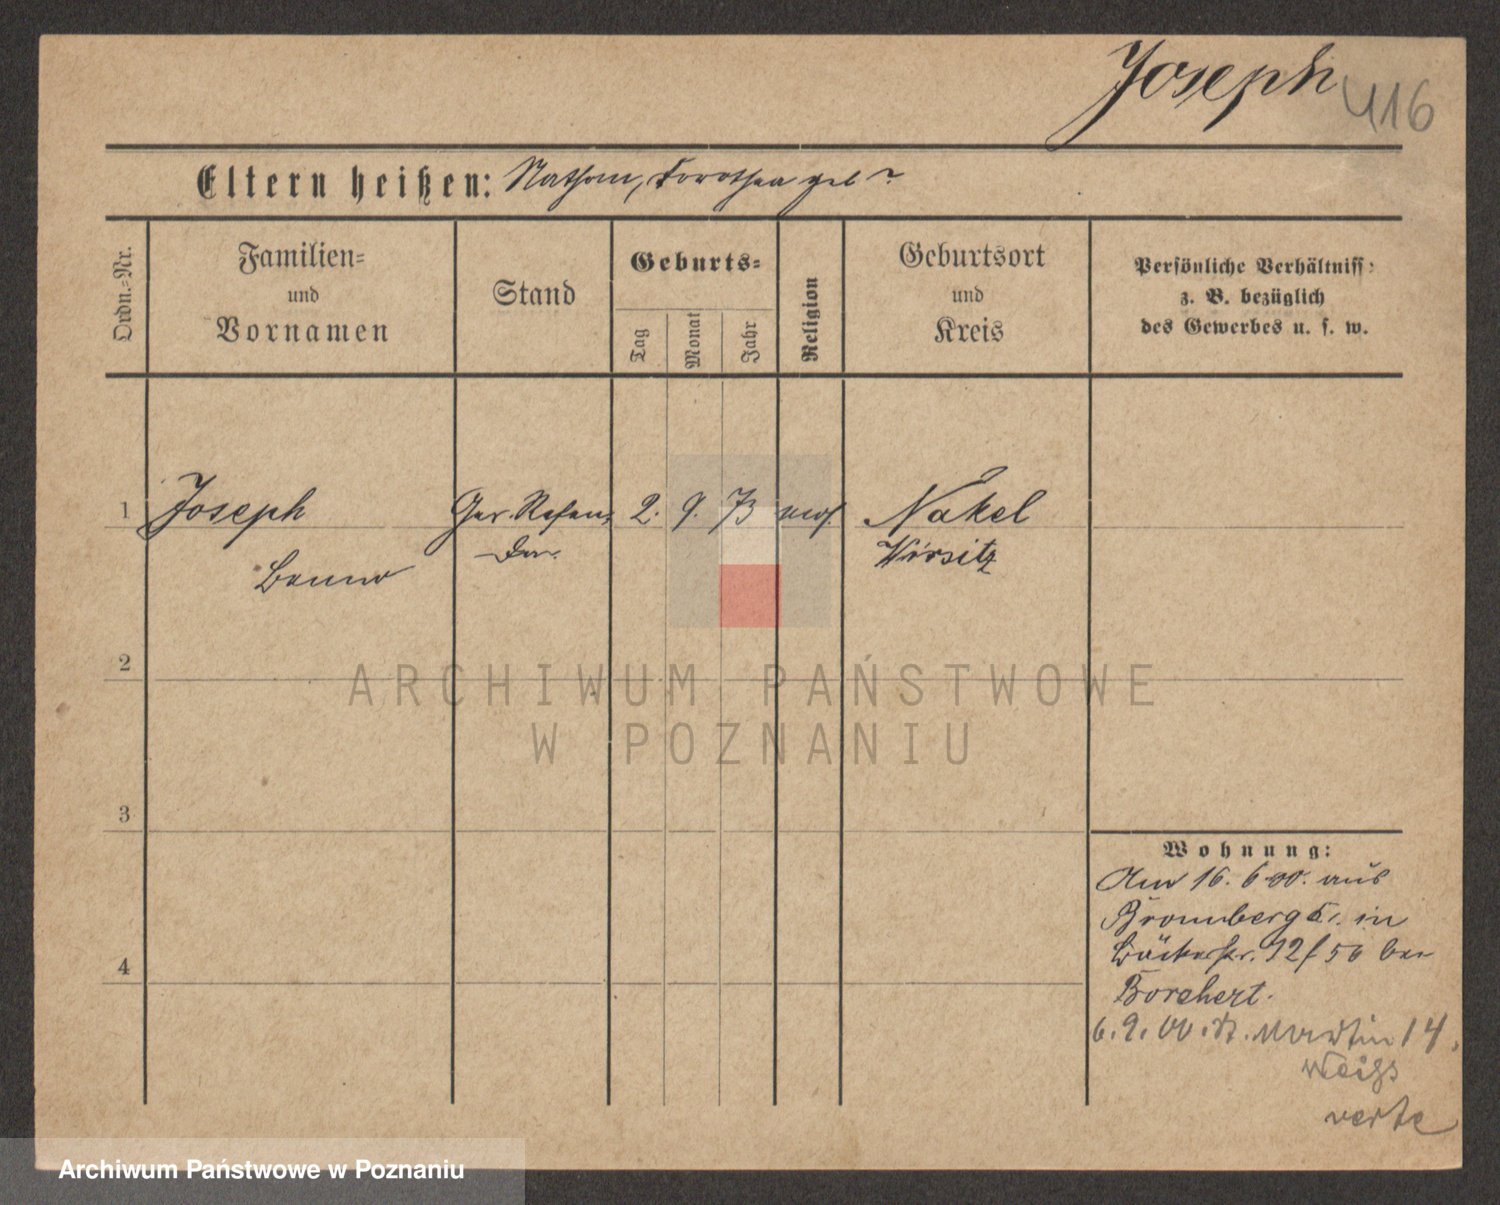 Joseph 416
Eltern heißen: Nathan, Dorothea geb?
Ordn.-Nr.
Familien-
und
Vornamen
Stand
Geburts-
Tag
Monat
Jahr
Religion
Geburtsort
und
Kreis
Persönliche Verhältniss:
z. B. bezüglich
des Gewerbes u. s. w.
1 Joseph Ger. Refen, 2. 9. 73 mos. Nakel
dar. Wirsitz
Benno
2
ARCHIWUM PAŃSTWOWE
W POZNANIU
3
Wohnung:
Am 16. 6 00. aus
Bromberg in
Bäckerstr. 12/ 56 bei
4
Borchert.
6. 9. 00. St. Martin 14.
Weiss
verte
Archiwum Państwowe w Poznaniu